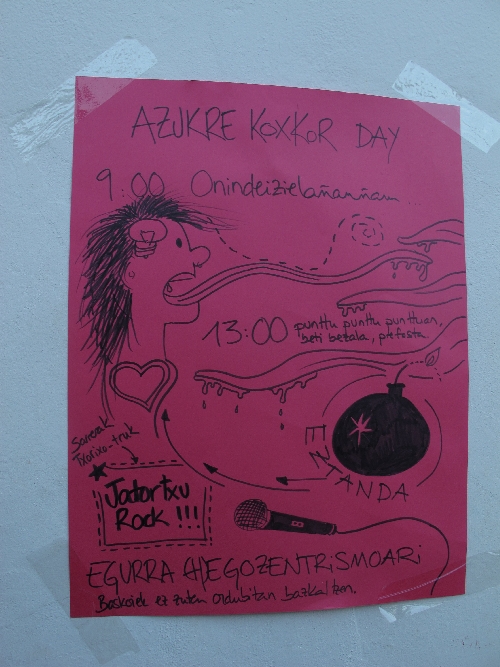 AZUKRE KOXKOR DAY
9:00 Onindeizielañanñam...
13:00 punttu punttu punttuan,
beti bezala, pte festa
EZTANDA
Sarrerak
Txorixo-truk
Jatortxu
Rock !!!
EGURRA (H)EGOZENTRISMOARI
Baskoiek ez zuten ordubitan bazkaltzen.